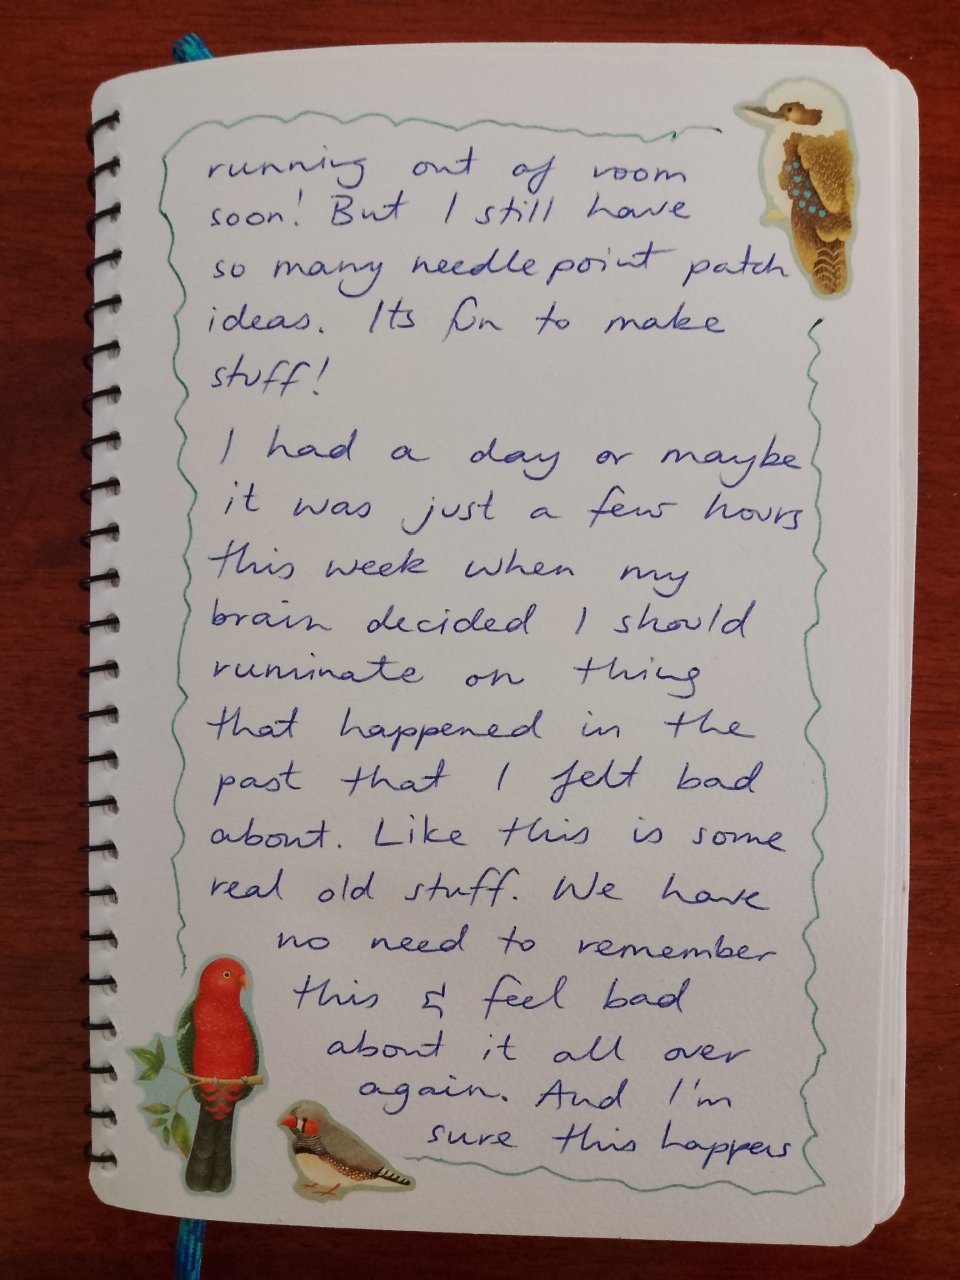 running out of room
soon! But I still have
so many needlepoint patch
ideas. Its fun to make
stuff!
I had a day or maybe
it was just a few hours
this week when my
brain decided I should
ruminate on thing
that happened in the
past that I felt bad
about. Like this is some
real old stuff. We have
no need to remember
this & feel bad
about it all over
again. And I'm
sure this happens